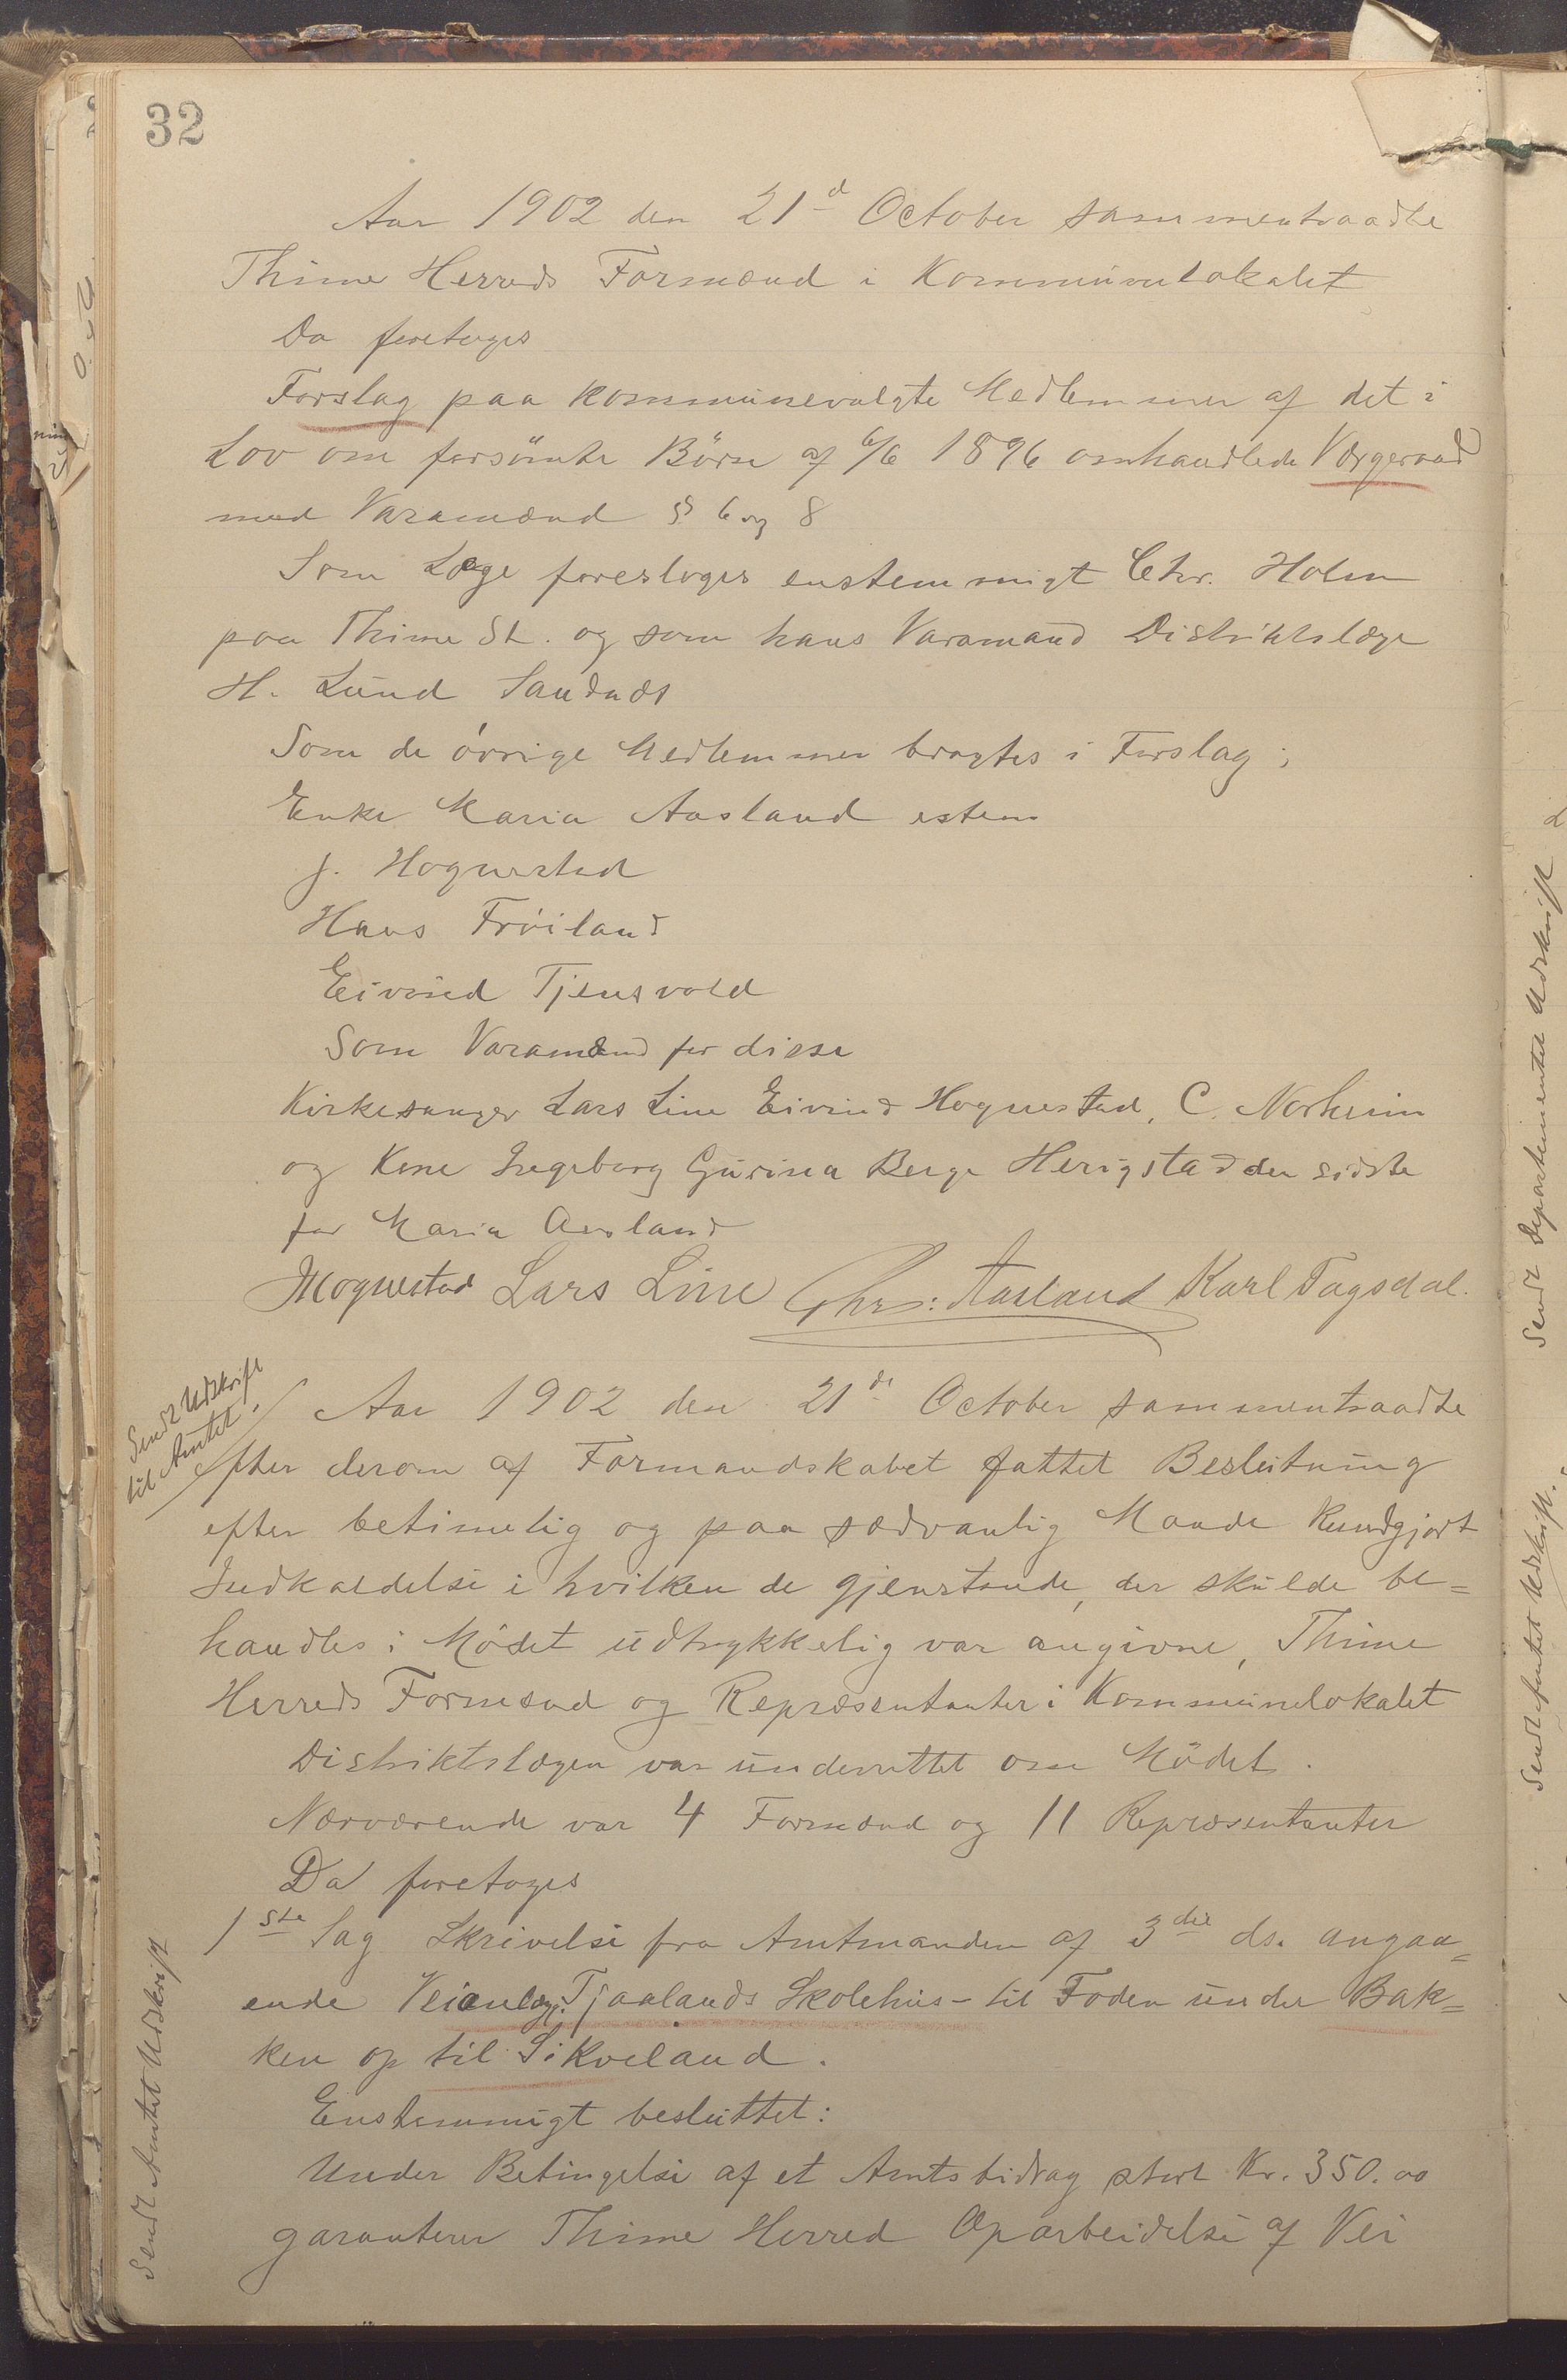 32
Aar 1902 den 21d October sammentraadte
Thime Herreds Formænd i Kommunelokalet
Da foretoges
Forslag paa kommunevalgte Medlemmer af det i
Lov om forsömte Börn af 6/6 1896 omhandlede Værgeraad
med Varamænd § 6 og 8
Som Læge foresloges enstemmigt Chr. Holm
paa Thime St. og som hans Varamand Distriktslæge
H. Lund Sandnæs
Som de övrige Medlemmer bragtes i Forslag;
Enke Maria Aasland estem
J. Hognestad
Hans Fröiland
Eivind Tjensvold
Som Varamænd for disse
Kirkesanger Lars Line Eivind Hognestad, C. Norheim
og Kone Ingeborg Gurina Berge Herigstad den sidste
for Maria Aasland
JHognestad Lars Line Chr: Aasland Karl Tagsdal.
Sendt Udskrift
til Amtet.
Aar 1902 den 21de October sammentraadte
efter derom af Formandskabet fattet Beslutning
efter betimelig og paa sædvanlig Maade Kundgjort
Indkaldelse i hvilken de gjenstande, der skulde be=
handles i Mödet udtrykkelig var angivne, Thime
Herreds Formænd og Repræsentanter i Kommunelokalet
Distriktslægen var underrettet om Mödet.
Nærværende var 4 Formænd og 11 Repræsentanter
Da foretoges
1ste Sag Skrivelse fra Amtmanden af 3die ds. angaa=
ende Veianlæg. Tjaalands Skolehus - til Foden under Bak=
ken op til Sikveland.
Enstemmigt besluttet:
Under Betingelse af et Amtsbidrag stort Kr. 350.00
garanterer Thime Herred Oparbeidelse af Vei
Sendt Amtet Udskrift
Sendt Departementet Udskrift
Sendt Amtet Udskrift.